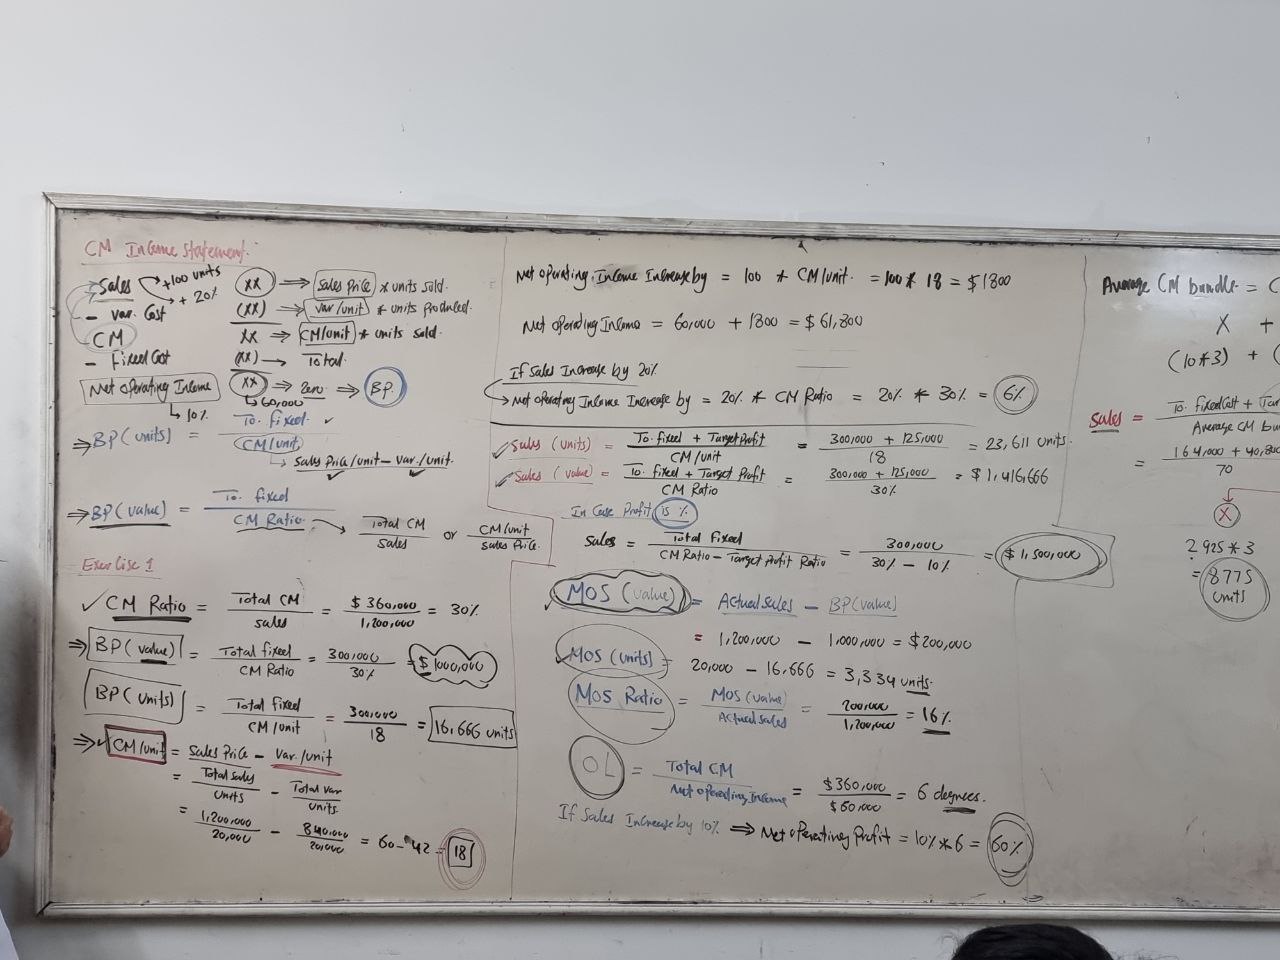 CM Income Statement:
Sales +100 units (XX) → Sales Price * units sold.
+ 20%
- Var. Cost (XX) → var/unit * units produced.
CM XX → CM/unit * units sold.
- Fixed Cost (XX) → Total.
Net operating Income XX → Zero → BP.
↳ 60,000
↳ 10%
⇒ BP (units) = To. fixed / CM/unit
↳ Sales Price/unit - Var./unit.
⇒ BP (value) = To. fixed / CM Ratio → Total CM / sales or CM/unit / Sales Price.
Exercise 1
✓ CM Ratio = Total CM / sales = $ 360,000 / 1,200,000 = 30%
⇒ BP (value) = Total fixed / CM Ratio = 300,000 / 30% = $ 1000,000
BP (units) = Total fixed / CM/unit = 300,000 / 18 = 16,666 units
⇒ ✓ CM/unit = Sales Price - Var./unit
= Total sales / units - Total var / units
= 1,200,000 / 20,000 - 840,000 / 20,000 = 60 - 42 = 18
Net operating Income Increase by = 100 * CM/unit. = 100 * 18 = $ 1800
Net operating Income = 60,000 + 1800 = $ 61,800
If Sales Increase by 20%
→ Net operating Income Increase by = 20% * CM Ratio = 20% * 30% = 6%
✓ Sales (units) = To. fixed + Target Profit / CM/unit = 300,000 + 125,000 / 18 = 23,611 units.
✓ Sales (value) = To. fixed + Target Profit / CM Ratio = 300,000 + 125,000 / 30% = $ 1,416,666
In Case Profit is %
Sales = Total fixed / CM Ratio - Target Profit Ratio = 300,000 / 30% - 10% = $ 1,500,000
✓ MOS (value) = Actual sales - BP (value)
= 1,200,000 - 1,000,000 = $ 200,000
✓ MOS (units) = 20,000 - 16,666 = 3,334 units.
MOS Ratio = MOS (value) / Actual sales = 200,000 / 1,200,000 = 16%
OL = Total CM / Net operating Income = $ 360,000 / $ 60,000 = 6 degrees.
If Sales Increase by 10% ⇒ Net operating Profit = 10% * 6 = 60%
Average CM bundle = C
X +
(10*3) + (
Sales = To. fixed Cost + Tar / Average CM bu
= 164,000 + 40, / 70
X
2925 * 3
= 8775 units